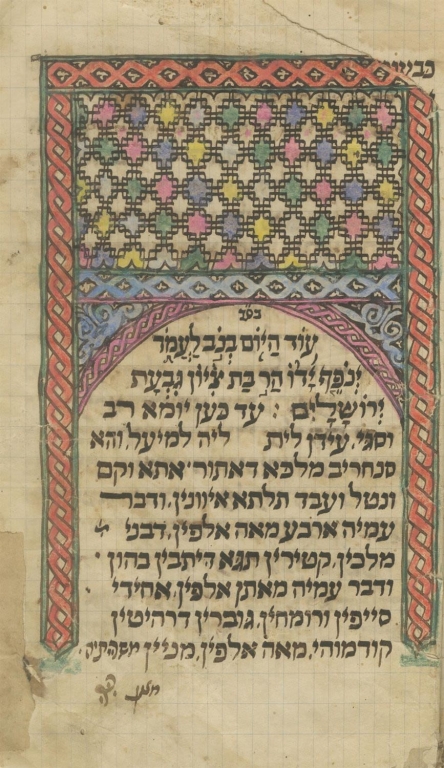 עוֹד הַיּוֹם בְּנֹב לַעֲמֹד
יְנֹפֵף יָדוֹ הַר בַּת צִיּוֹן גִּבְעַת
יְרוּשָׁלָיִם : עד כען יומא רב
וסגי. עידן לית ליה למיעל. והא
סנחריב מלכא דאתור אתא וקם
ונטל ועבד תלתא איוונין. ודבר
עמיה ארבע מאה אלפין. דבני
מלכין. קטירין תגא דיתבין בהון
ודבר עמיה מאתן אלפין. אחידי
סייפין ורומחין. גוברין דרהיטין
קודמוהי. מאה אלפין. מניין